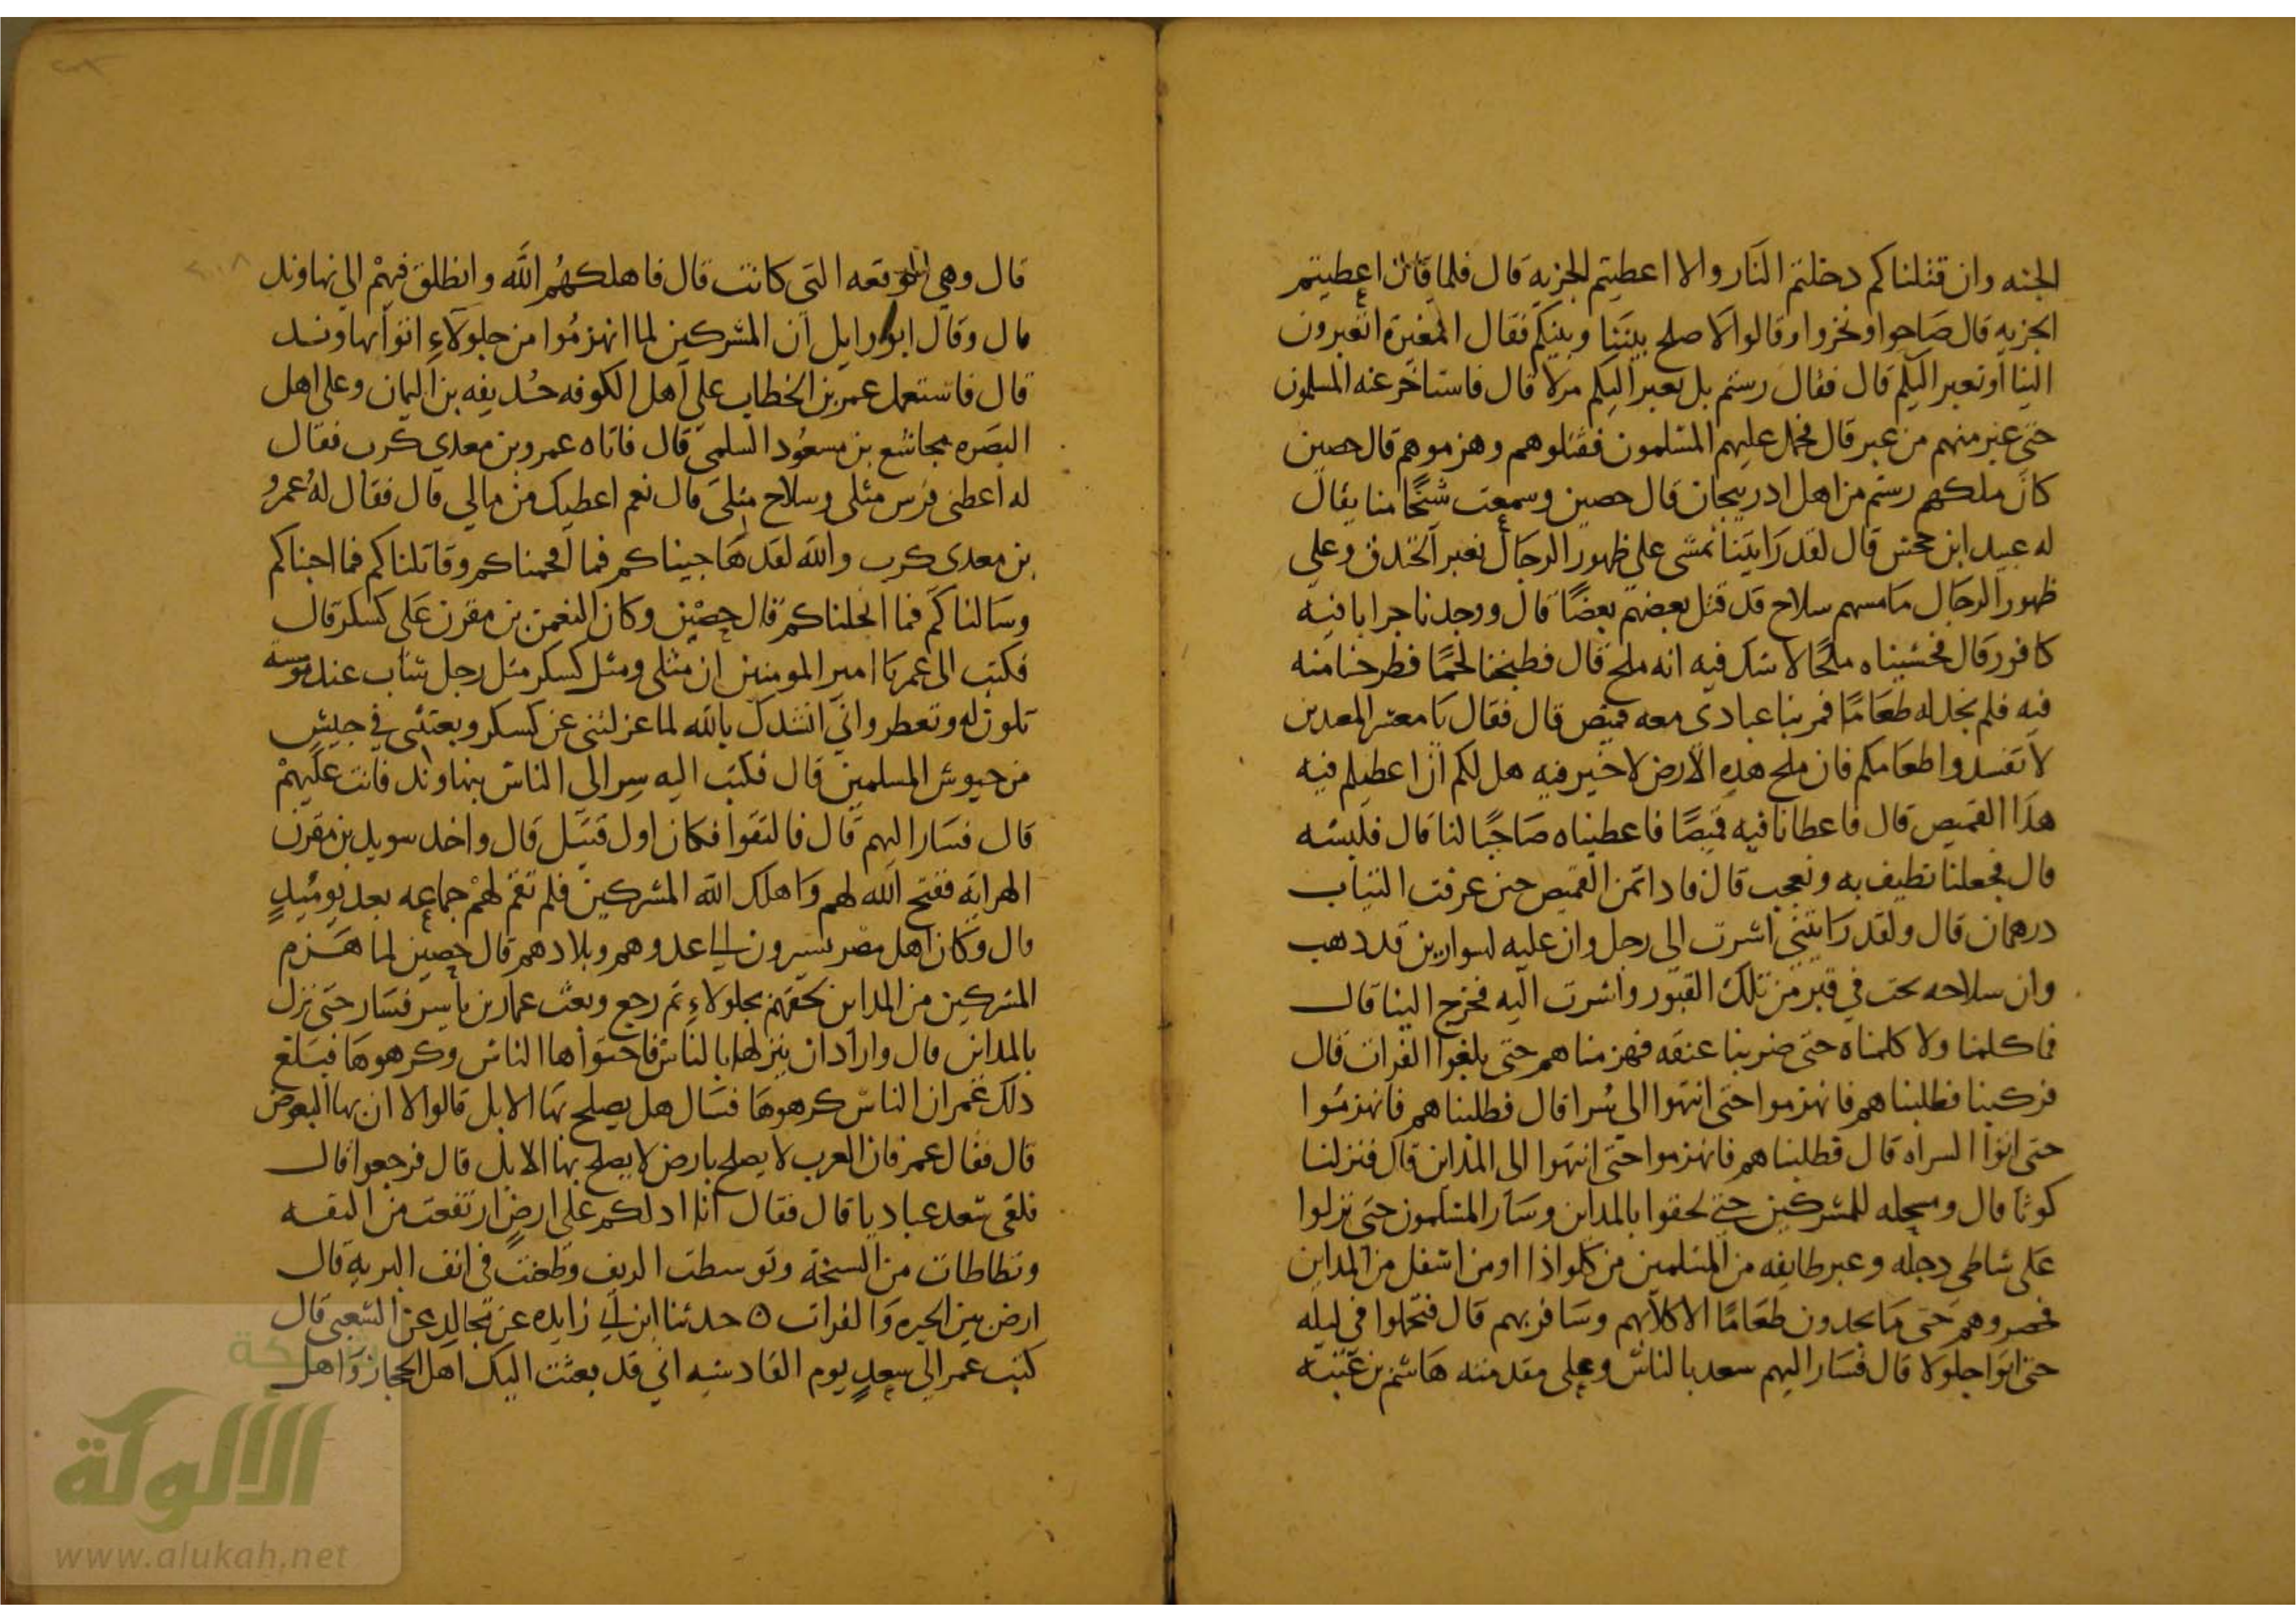 الجنه وان قتلناكم دخلتم النار والا اعطيتم الجزيه قال فلما قال اعطيتم
الجزيه قال صاحوا ونخروا وقالوا لا صلح بيننا وبينكم فقال المغيرة اتعبرون
الينا او نعبر اليكم قال فقال رستم بل نعبر اليكم مدلا قال فاستاخر عنه المسلمون
حتى عبر منهم من عبر قال فحمل عليهم المسلمون فقتلوهم وهزموهم قال حصين
كان ملكهم رستم من اهل ادربيجان قال حصين وسمعت شيخا منا يقال
له عبيد ابن جحش قال لقد رايتنا نمشى على ظهور الرجال نعبر الخندق وعلى
ظهور الرجال ما مسهم سلاح قد قتل بعضهم بعضا قال ووجدنا جرابا فيه
كافور قال فحسبناه ملحا لا شك فيه انه ملح قال فطبخنا لحما فطرحنا منه
فيه فلم نجد له طعاما فمر بنا عبادى معه قميص قال فقال يا معشر المعدين
لا تفسدوا طعامكم فان ملح هذه الارض لا خير فيه هل لكم ان اعطيكم فيه
هذا القميص قال فاعطانا فيه قميصا فاعطيناه صاحبا لنا قال فلبسه
قال فجعلنا نطيف به ونعجب قال فاذا ثمن القميص حين عرفت الثياب
درهمان قال ولقد رايتنى اشرت الى رجل وان عليه لسوارين قد ذهب
وان سلاحه تحت في قبر من تلك القبور واشرت اليه فخرج الينا قال
فما كلمنا ولا كلمناه حتى ضربنا عنقه فهزمناهم حتى بلغوا الفرات قال
فركبنا فطلبناهم فانهزموا حتى انتهوا الى سرا قال فطلبناهم فانهزموا
حتى اتوا السراه قال فطلبناهم فانهزموا حتى انتهوا الى المداين قال فنزلنا
كوثا قال ومسحله للمشركين حتى لحقوا بالمداين وسار المسلمون حتى نزلوا
على شاطى دجله وعبر طايفه من المسلمين من كلواذا او من اسفل من المداين
فحصروهم حتى ما يجدون طعاما الا كلابهم وسنانيرهم قال فتحملوا في ليله
حتى اتوا جلولا قال فسار اليهم سعد بالناس وعلى مقدمته هاشم بن عتبه
قال وهي الوقعه التى كانت قال فاهلكهم الله وانطلق فيهم الى نهاوند
قال وقال ابو وايل ان المشركين لما انهزموا من جلولاء اتوا نهاوند
قال فاستعمل عمر بن الخطاب على اهل الكوفه حذيفه بن اليمان وعلى اهل
البصره مجاشع بن مسعود السلمى قال فاتاه عمرو بن معدى كرب فقال
له اعطنى فرس مثلى وسلاح مثلى قال نعم اعطيك من مالي قال فقال له عمرو
بن معدى كرب والله لقد هاجيناكم فما افحمناكم وقاتلناكم فما اجبناكم
وسالناكم فما ابخلناكم قال حصين وكان النعمن بن مقرن على كسكر قال
فكتب الى عمر يا امير المومنين ان مثلى ومثل كسكر مثل رجل شاب عند مومسة
تلون له وتعطر وانى انشدك بالله لما عزلتنى عن كسكر وبعثتنى في جيش
من جيوش المسلمين قال فكتب اليه سر الى الناس بنهاوند فانت عليهم
قال فسار اليهم قال فالتقوا فكان اول قتيل قال واخذ سويد بن مقرن
الرايه ففتح الله لهم واهلك الله المشركين فلم تقم لهم جماعه بعد يوميذ
قال وكان اهل مصر يسيرون الى عدوهم وبلادهم قال حصين لما هزم
المشركين من المداين لحقهم بجلولاء ثم رجع وبعث عمار بن ياسر فسار حتى نزل
بالمداين قال واراد ان ينزلها بالناس فاجتواها الناس وكرهوها فبلغ
ذلك عمر ان الناس كرهوها فسال هل يصلح بها الابل قالوا لا ان بها البعوض
قال فقال عمر فان العرب لا يصلح بارض لا يصلح بها الابل قال فرجعوا قال
فلقى سعد عباديا قال فقال انا ادلكم على ارض ارتفعت من البقه
وتطاطات من السبخة وتوسطت الريف وطعنت في انف البرية قال
ارض بين الحيره والفرات ○ حدثنا ابن ابي زايده عن مجالد عن الشعبى قال
كتب عمر الى سعد يوم القادسيه انى قد بعثت اليك اهل الحجاز واهل
الألوكة
www.alukah.net